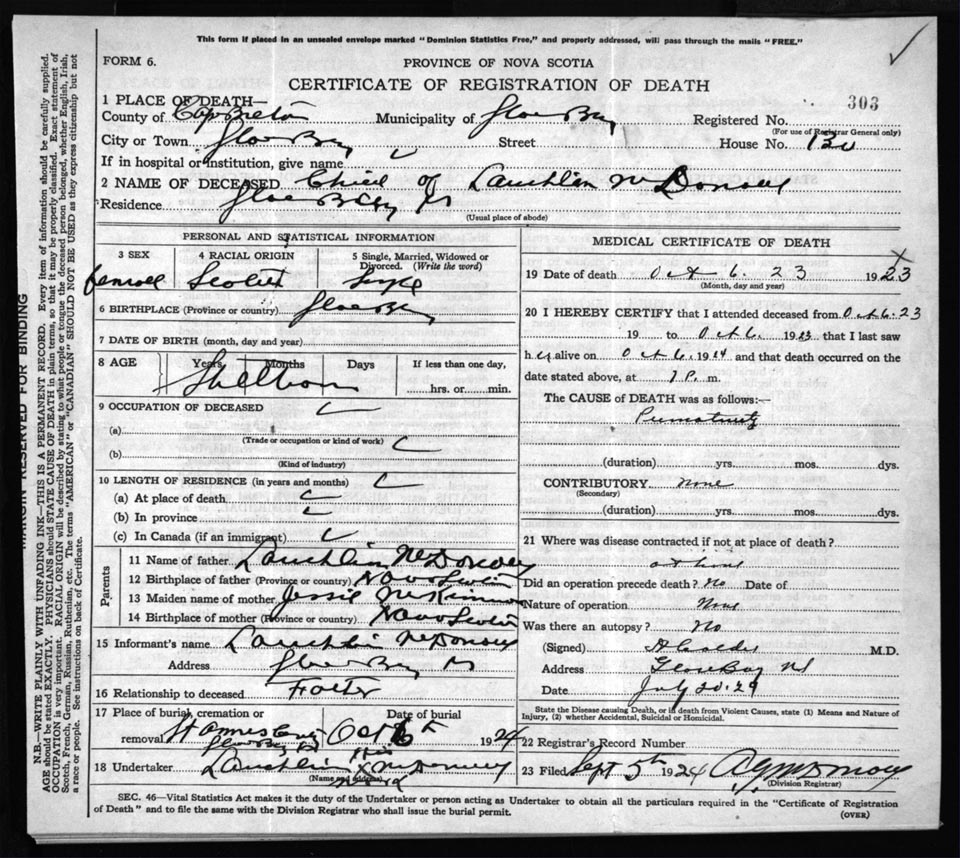 This form if placed in an unsealed envelope marked "Dominion Statistics Free," and properly addressed, will pass through the mails "FREE."
FORM 6.
PROVINCE OF NOVA SCOTIA
CERTIFICATE OF REGISTRATION OF DEATH
303
1 PLACE OF DEATH—
County of Cape Breton Municipality of Glace Bay Registered No.
(For use of Registrar General only)
City or Town Glace Bay Street House No.
If in hospital or institution, give name
2 NAME OF DECEASED Child of Lauchlin McDonald
Residence Glace Bay NS
(Usual place of abode)
PERSONAL AND STATISTICAL INFORMATION
3 SEX 4 RACIAL ORIGIN 5 Single, Married, Widowed or Divorced. (Write the word)
female Scotch Single
6 BIRTHPLACE (Province or country) Glace Bay
7 DATE OF BIRTH (month, day and year)
8 AGE Years Months Days If less than one day,
Stillborn hrs. or min.
9 OCCUPATION OF DECEASED
(a)
(Trade or occupation or kind of work)
(b)
(Kind of industry)
10 LENGTH OF RESIDENCE (in years and months)
(a) At place of death
(b) In province
(c) In Canada (if an immigrant)
Parents
11 Name of father Lauchlin McDonald
12 Birthplace of father (Province or country) Nova Scotia
13 Maiden name of mother Jessie McKinnon
14 Birthplace of mother (Province or country) Nova Scotia
15 Informant's name Lauchlin McDonald
Address Glace Bay NS
16 Relationship to deceased Father
17 Place of burial, cremation or removal Date of burial
Glace Bay Oct 6 1924
18 Undertaker Lauchlin McDonald
(Name and address)
MEDICAL CERTIFICATE OF DEATH
19 Date of death Oct 6. 23 1923
(Month, day and year)
20 I HEREBY CERTIFY that I attended deceased from Oct 6. 23
19 to Oct 6. 1923 that I last saw
her alive on Oct 6. 1924 and that death occurred on the
date stated above, at 7 P. m.
The CAUSE of DEATH was as follows:—
Prematurity
(duration) yrs. mos. dys.
CONTRIBUTORY none
(Secondary)
(duration) yrs. mos. dys.
21 Where was disease contracted if not at place of death?
at home
Did an operation precede death? No Date of
Nature of operation None
Was there an autopsy? No
(Signed) M.D.
Address Glace Bay NS
Date July 20. 29
State the Disease causing Death, or in death from Violent Causes, state (1) Means and Nature of Injury, (2) whether Accidental, Suicidal or Homicidal.
22 Registrar's Record Number
23 Filed Sept 5th 1924
(Division Registrar)
SEC. 46—Vital Statistics Act makes it the duty of the Undertaker or person acting as Undertaker to obtain all the particulars required in the "Certificate of Registration
of Death" and to file the same with the Division Registrar who shall issue the burial permit.
(OVER)
MARGIN RESERVED FOR BINDING
N.B.—WRITE PLAINLY WITH UNFADING INK—THIS IS A PERMANENT RECORD. Every item of information should be carefully supplied.
AGE should be stated EXACTLY. PHYSICIANS should STATE CAUSE OF DEATH in plain terms, so that it may be properly classified. Exact statement of
OCCUPATION is very important. RACIAL ORIGIN will be described by stating to what people or tongue the deceased person belonged, whether English, Irish,
Scotch, French, German, Russian, Ruthenian, etc. The terms "AMERICAN" or "CANADIAN" SHOULD NOT BE USED as they express citizenship but not
a race or people. See instructions on back of Certificate.